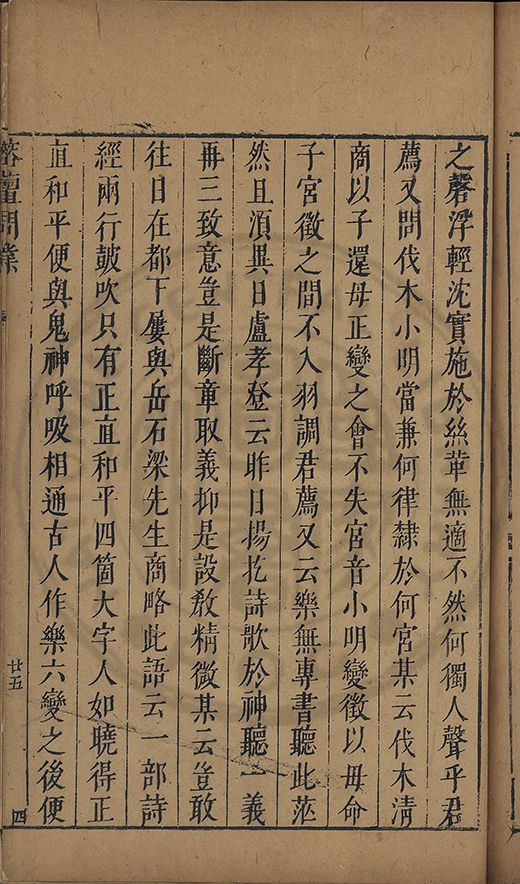 之磬浮輕沈實施於絲革無適不然何獨人聲乎君
薦又問伐木小明當兼何律隸於何宮某云伐木清
商以子還母正變之會不失宮音小明變徵以母命
子宮徵之間不入羽調君薦又云樂無專書聽此茫
然且湏異日盧孝登云昨日揚扢詩歌於神聽一義
再三致意豈是斷章取義抑是設教精微某云豈敢
往日在都下屢與岳石梁先生商略此語云一部詩
經兩行鼓吹只有正直和平四箇大字人如曉得正
直和平便與鬼神呼吸相通古人作樂六變之後便
榕壇問業
廿五
四